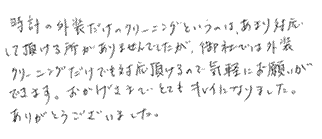 時計の外装だけのクリーニングというのは、あまり対応
して頂ける所がありませんでしたが、御社では外装
クリーニングだけでも対応頂けるので気軽にお願いが
できます。おかげさまで、とてもキレイになりました。
ありがとうございました。